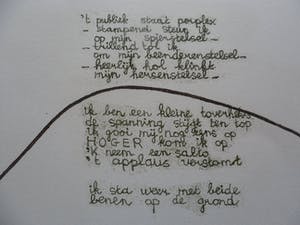 't publiek staart perplex
– stampend steun ik
op mijn spierstelsel –
– trillend tol ik
om mijn beenderenstelsel –
– heerlijk hol klinkt
mijn hersenstelsel –
ik ben een kleine toverheks
de spanning stijgt ten top
ik gooi mij nog eens op
HOGER kom ik op
'k neem een salto
't applaus verstomt
ik sta weer met beide
benen op de grond